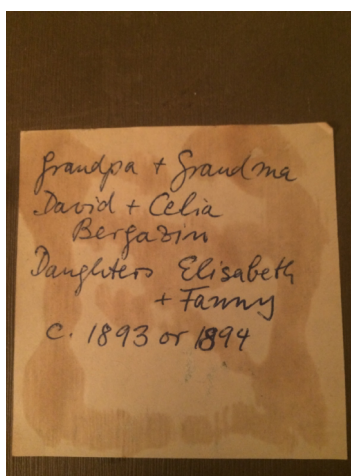 Grandpa + Grandma
David + Celia
Bergazin
Daughters Elisabeth
+ Fanny
c. 1893 or 1894